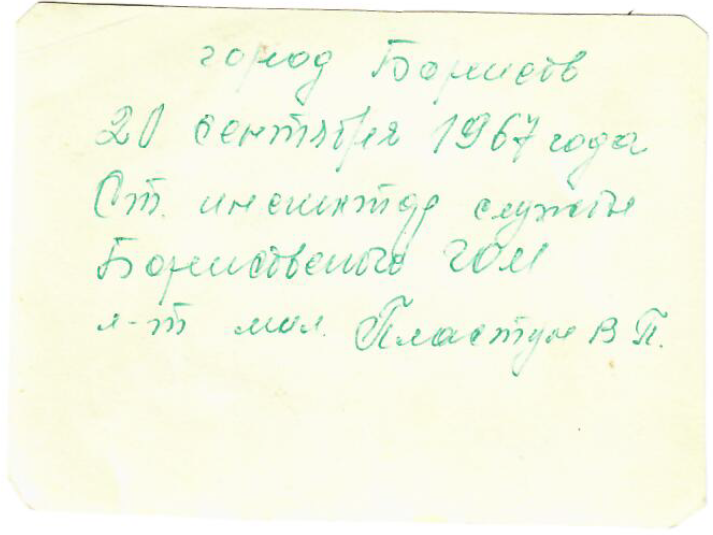 город Борисов
20 сентября 1967 года
Ст. инспектор службы
Борисовского ГОМ
л-т мил. Пластун В П.